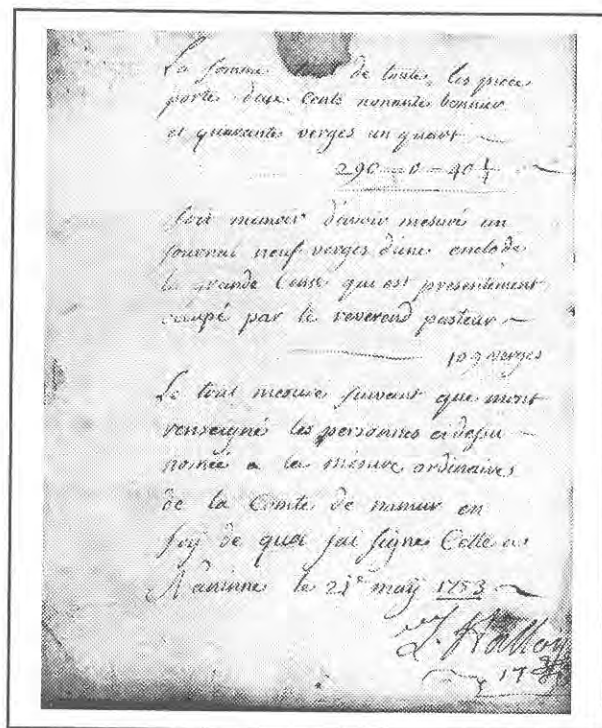 La somme total de toutes les piece
porte deux cents nonante bonnier
et quarantes verges un quart
290 – 0 – 40 1/4
soit memoir d'avoir mesuré un
journal neuf verges d'une enclo de
la grande Cense qui est presentement
ocupé par le reverend pasteur
109 verges
Le tout mesuré suivant que mont
renseigné les personnes cidessu
nomée a la mesure ordinaires
de la Comté de namur en
foy de quoi jai signé Celle a
Naninne le 21e may 1753